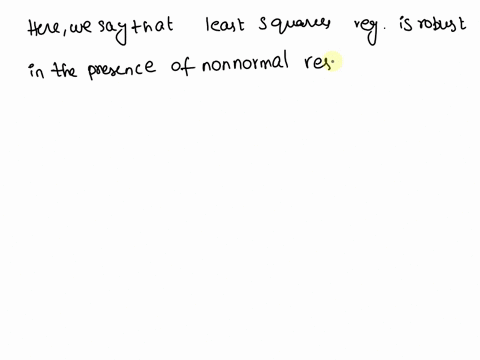 Here, we say that least squares reg. is robust
in the presence of nonnormal res